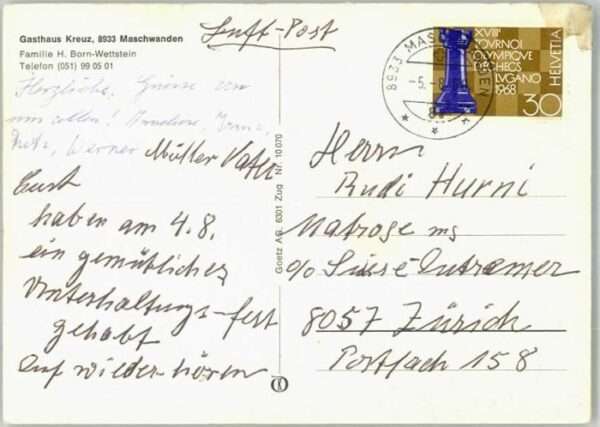 Gasthaus Kreuz, 8933 Maschwanden
Familie H. Born-Wettstein
Telefon (051) 99 05 01
Luft-Post
Herzliche Grüsse von
uns allen!
Werner Müller Vater
haben am 4.8.
ein gemütliches
Unterhaltungs-fest
gehabt
Auf wieder hören
Goetz AG, 6301 Zug Nr. 10 070
8933 MASCHWANDEN
-5.-8
XVIIIe
TOURNOI
OLYMPIQUE
D'ECHECS
LUGANO
1968
HELVETIA
30
Herrn
Rudi Hurni
Matrose
c/o Suisse-Outremer
8057 Zürich
Postfach 158